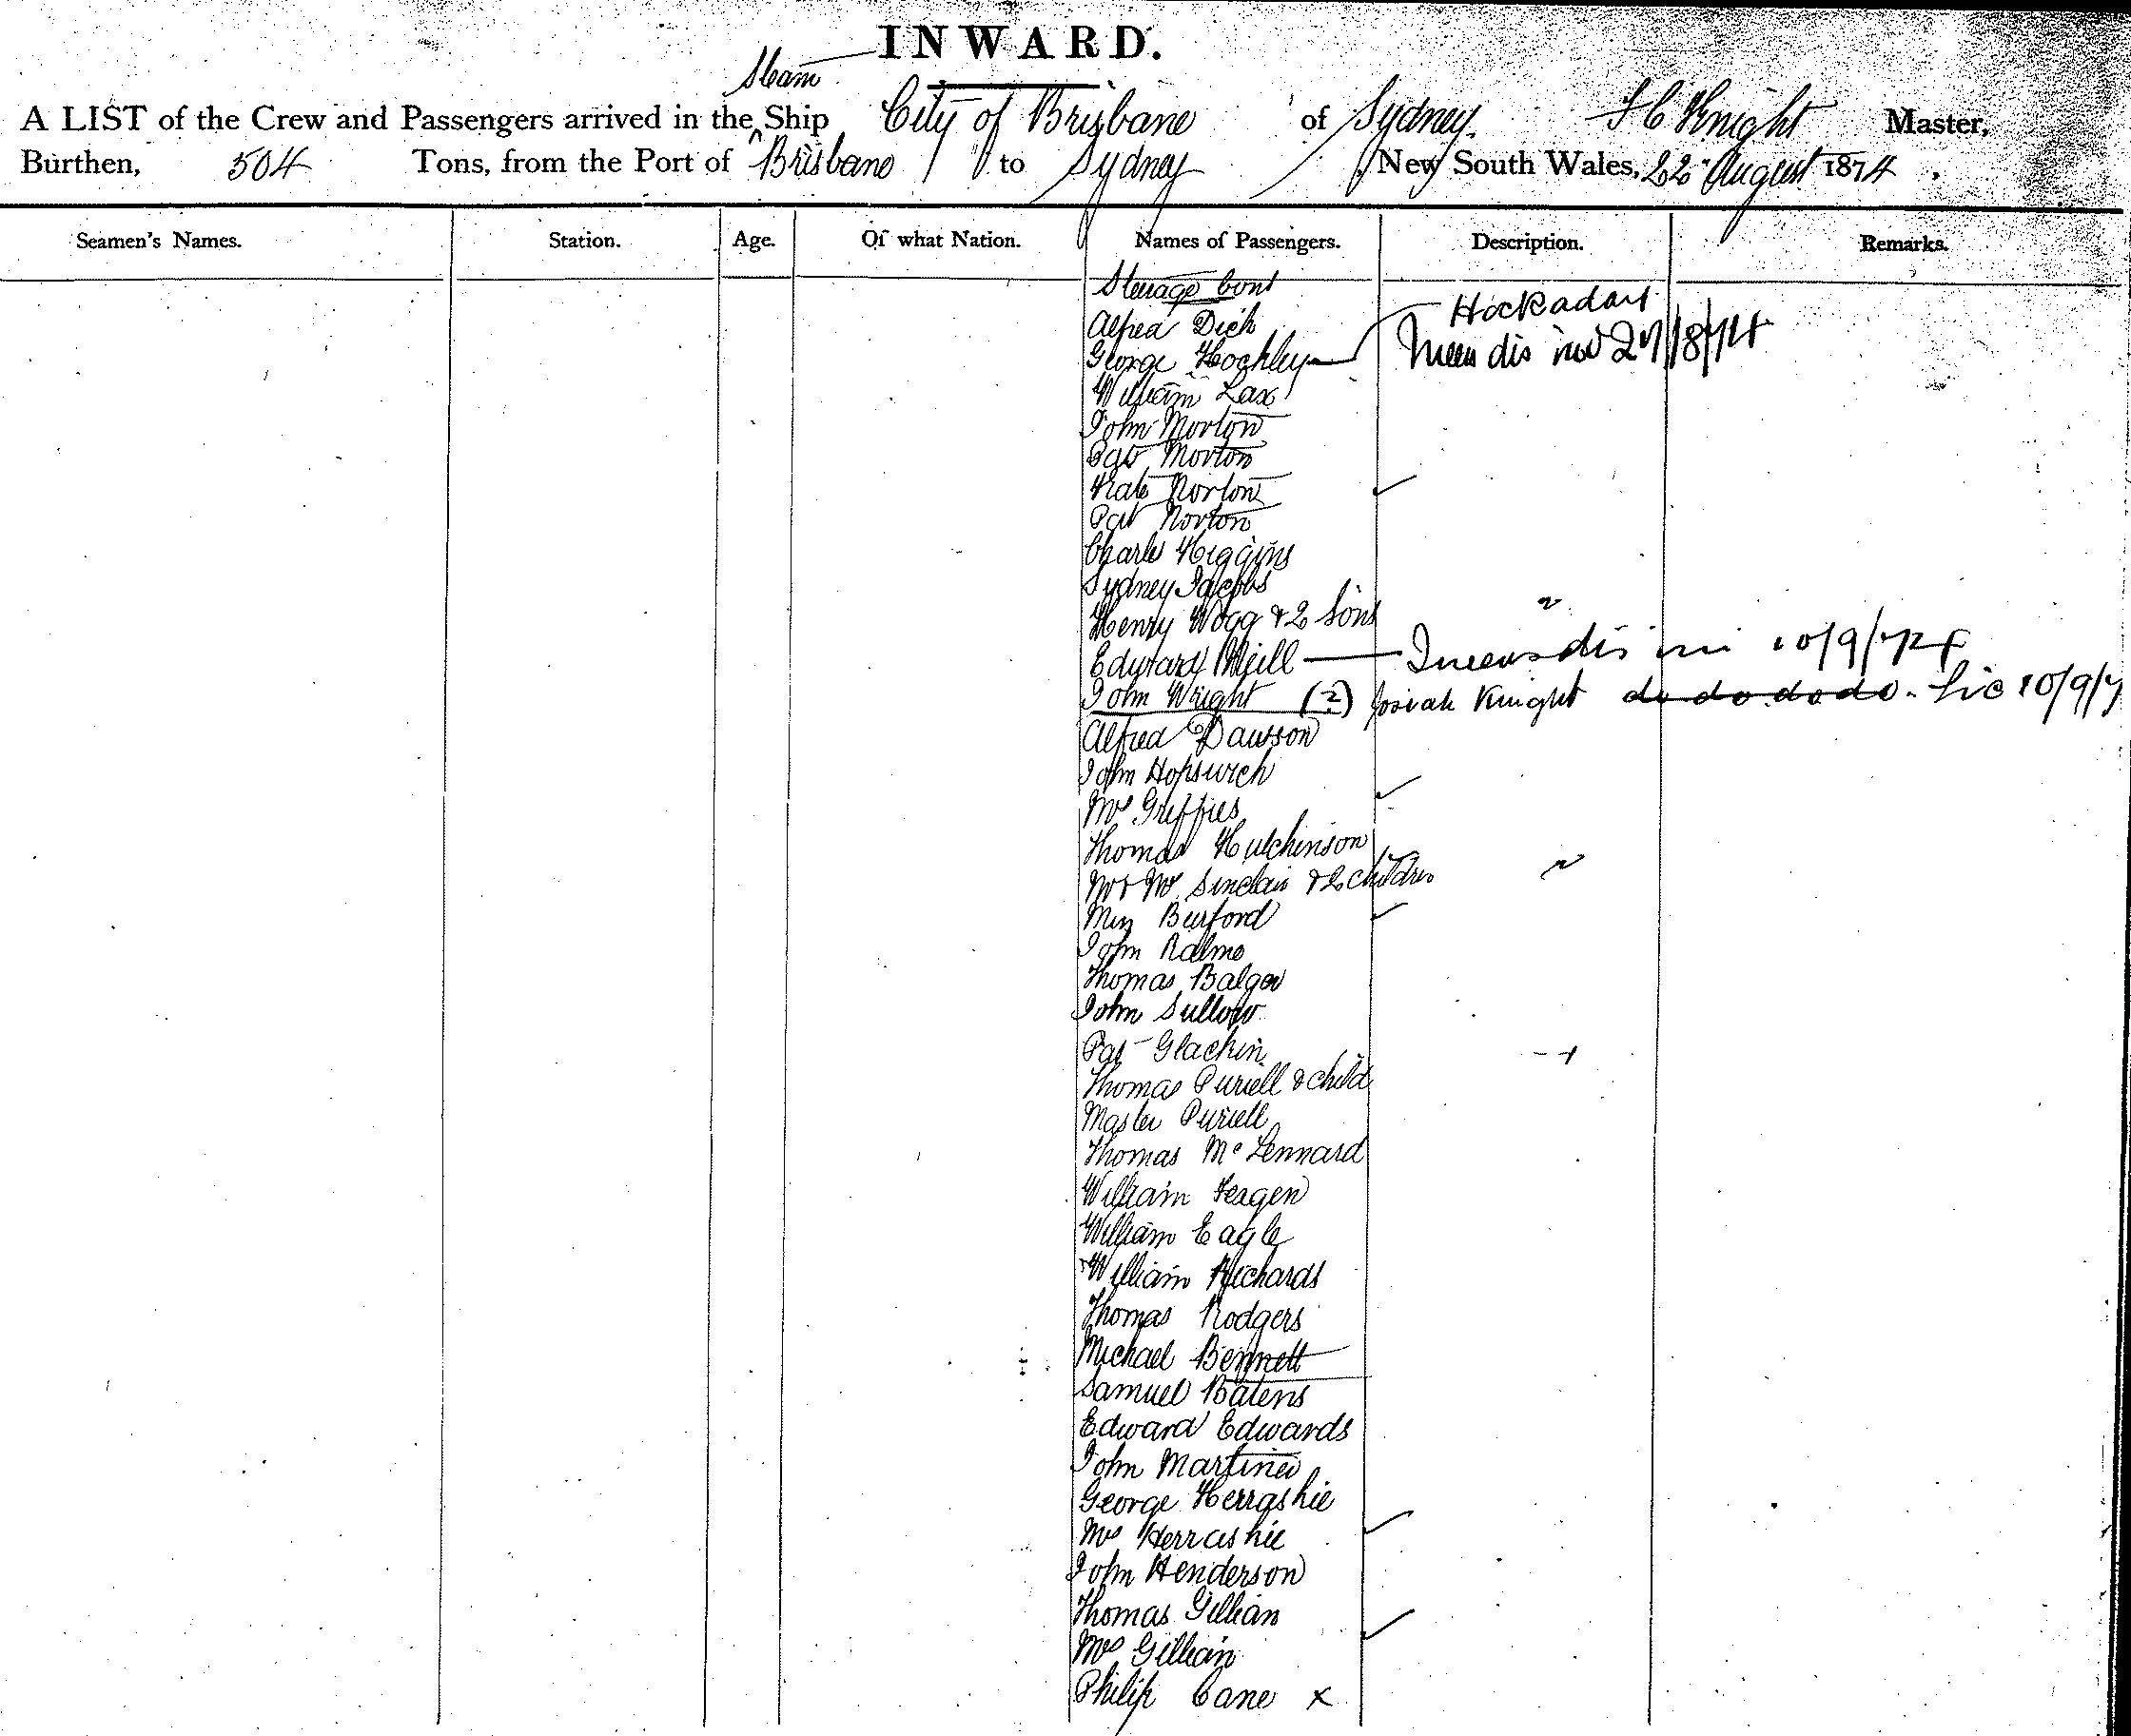 INWARD.
Steam
A LIST of the Crew and Passengers arrived in the ^ Ship City of Brisbane of Sydney. Knight Master,
Burthen, 504 Tons, from the Port of Brisbane to Sydney New South Wales, 22 August 1874.
Seamen's Names. Station. Age. Of what Nation. Names of Passengers. Description. Remarks.
Steerage Cont
Alfred Dick
George Hockley
William Lax
John Morton
Pat Morton
Kate Norton ✓
Pat Norton
Charles Higgins
Sydney Jacobs
Henry Wogg & 2 Sons
Edward Neill 10/9/74
John Wright (2) Josiah Knight do do do do. Lic 10/9/7
Alfred Dawson
John Hopswich
Mrs Greffies ✓
Thomas Hutchinson
Mr & Mrs Sinclair & 2 children
Miss Burford ✓
John Ralme
Thomas Balger
John Sullow
Pat Glachin
Thomas Puriell & child
Master Puriell
Thomas McLennard
William Feagen
William Eagle
William Richards
Thomas Rodgers
Michael Bennett
Samuel Batens
Edward Edwards
John Martiner
George Herrashie
Mrs Herrashie ✓
John Henderson
Thomas Gillian
Mrs Gillian ✓
Philip Cane x